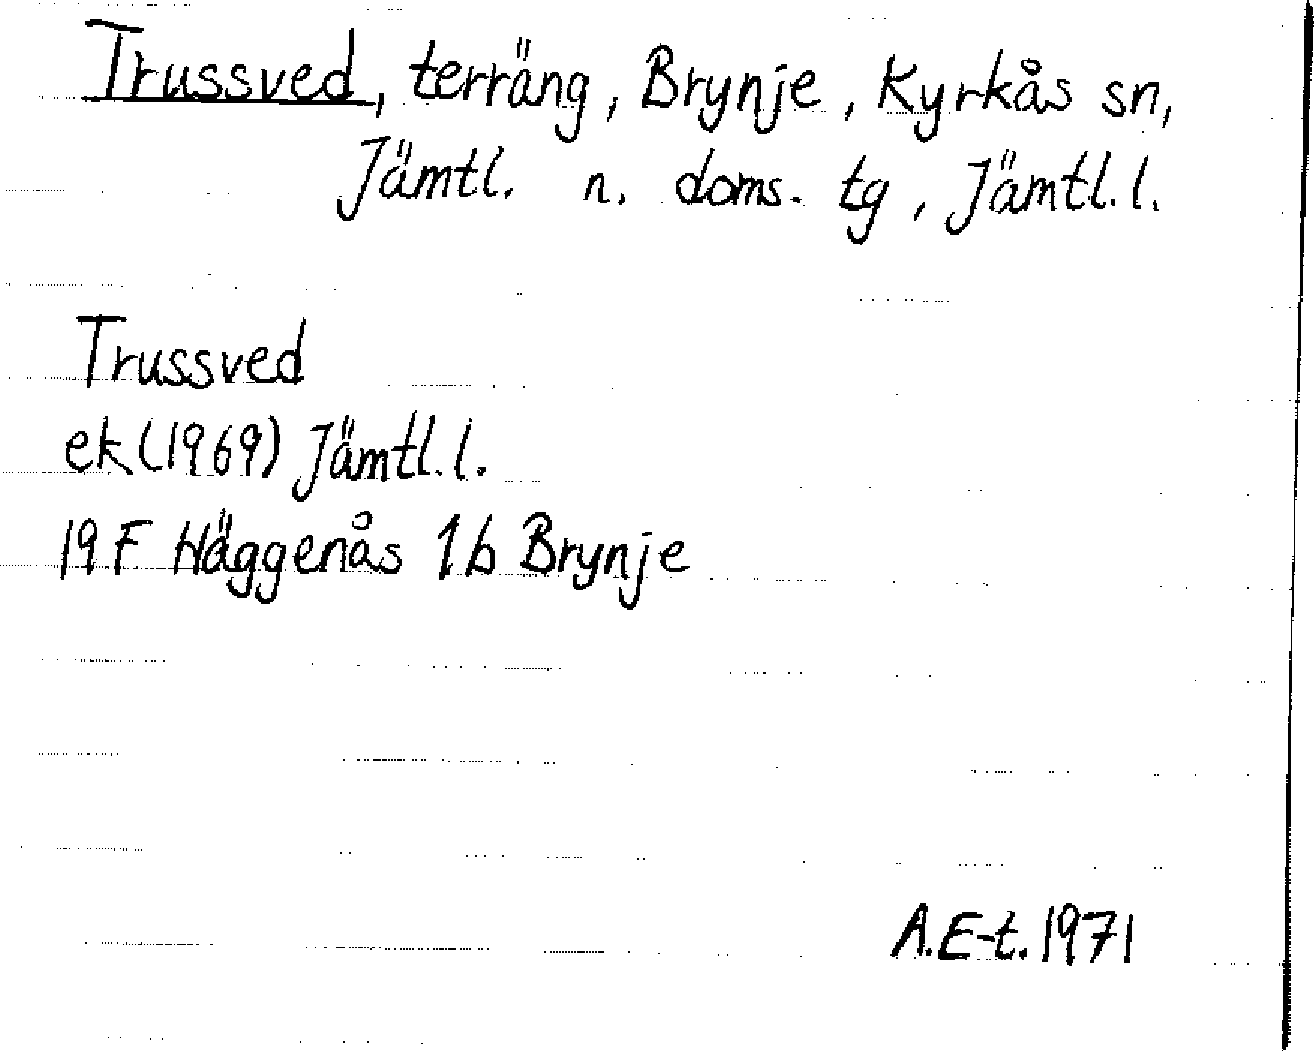 Trussved, terräng, Brynje, Kyrkås sn,
Jämtl. n. doms. tg, Jämtl. l.
Trussved
ek (1969) Jämtl. l.
19 F Häggenås 1 b Brynje
A. E-t. 1971